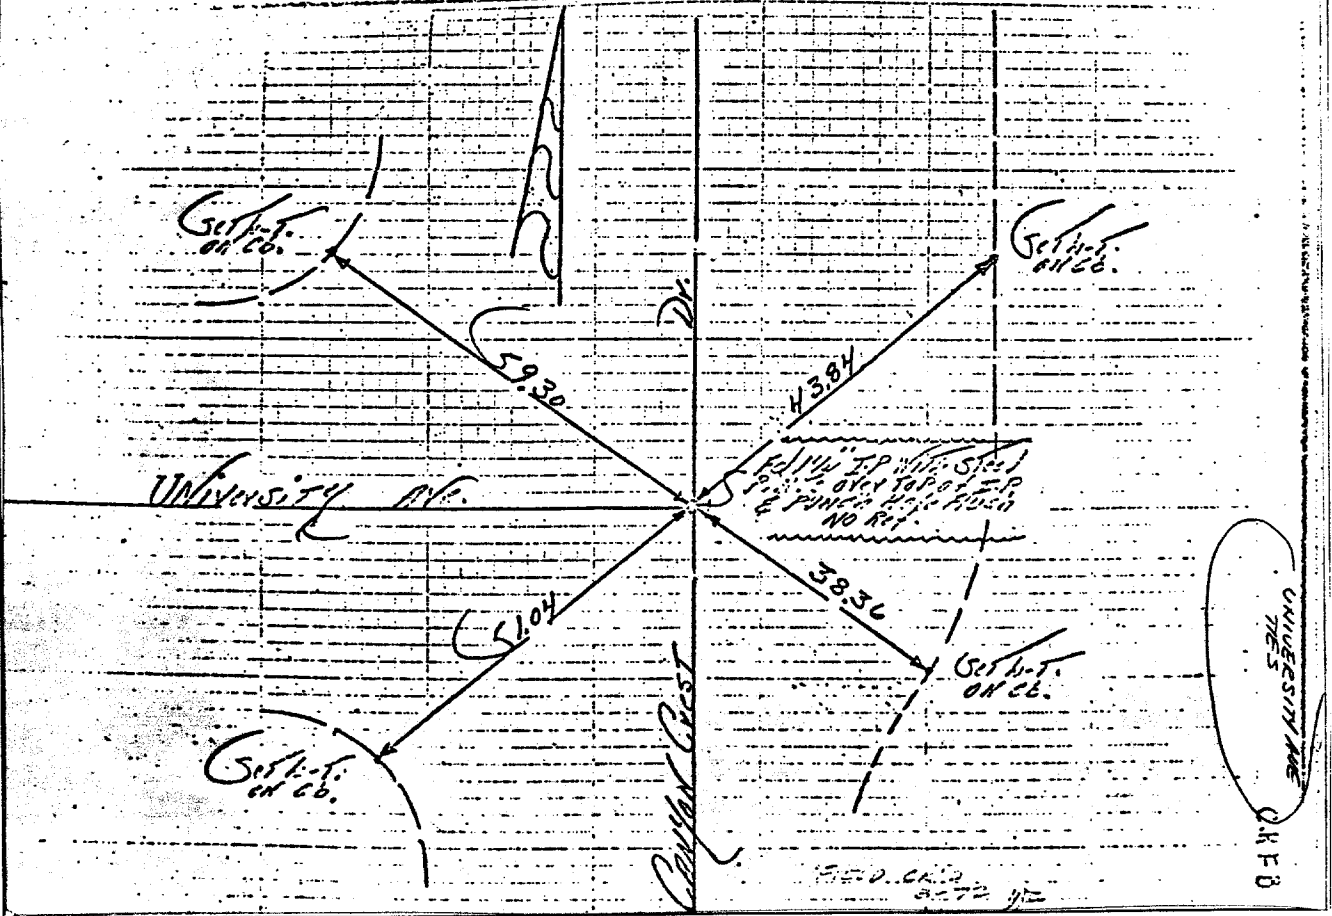 Set L-T.
on Cb.
Set L-T.
on Cb.
Dr.
59.30
43.84
Fd 1¼" I.P. With Steel
over Top of I.P.
& Punch Hole Flush
NO Ref.
University Ave.
51.04
38.36
Set L-T.
on Cb.
Set L-T.
on Cb.
Canyon Crest
UNIVERSITY AVE
TIES
FIELD CK'D
8-72